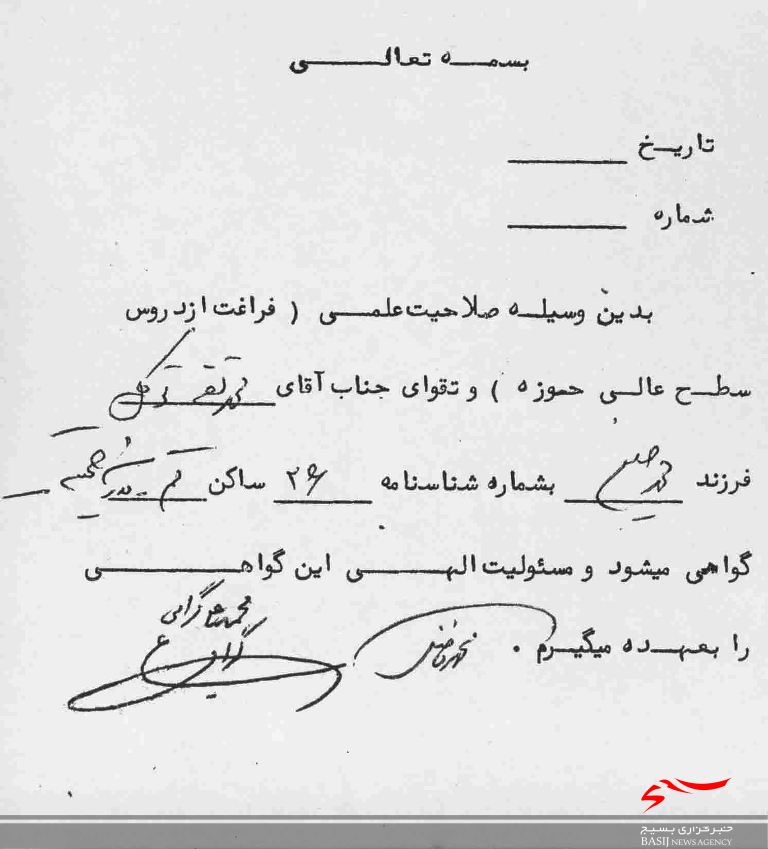 بسمه تعالی
تاریخ
شماره
بدین وسیله صلاحیت علمی ( فراغت از دروس
سطح عالی حوزه ) و تقوای جناب آقای محمد تقی
فرزند محمد حسین بشماره شناسنامه ۲۶ ساکن قم
گواهی میشود و مسئولیت الهی این گواهی
را بعهده میگیرم .
محمد علی گرامی
محمد فاضل
خبرگزاری بسیج
BASIJ NEWS AGENCY